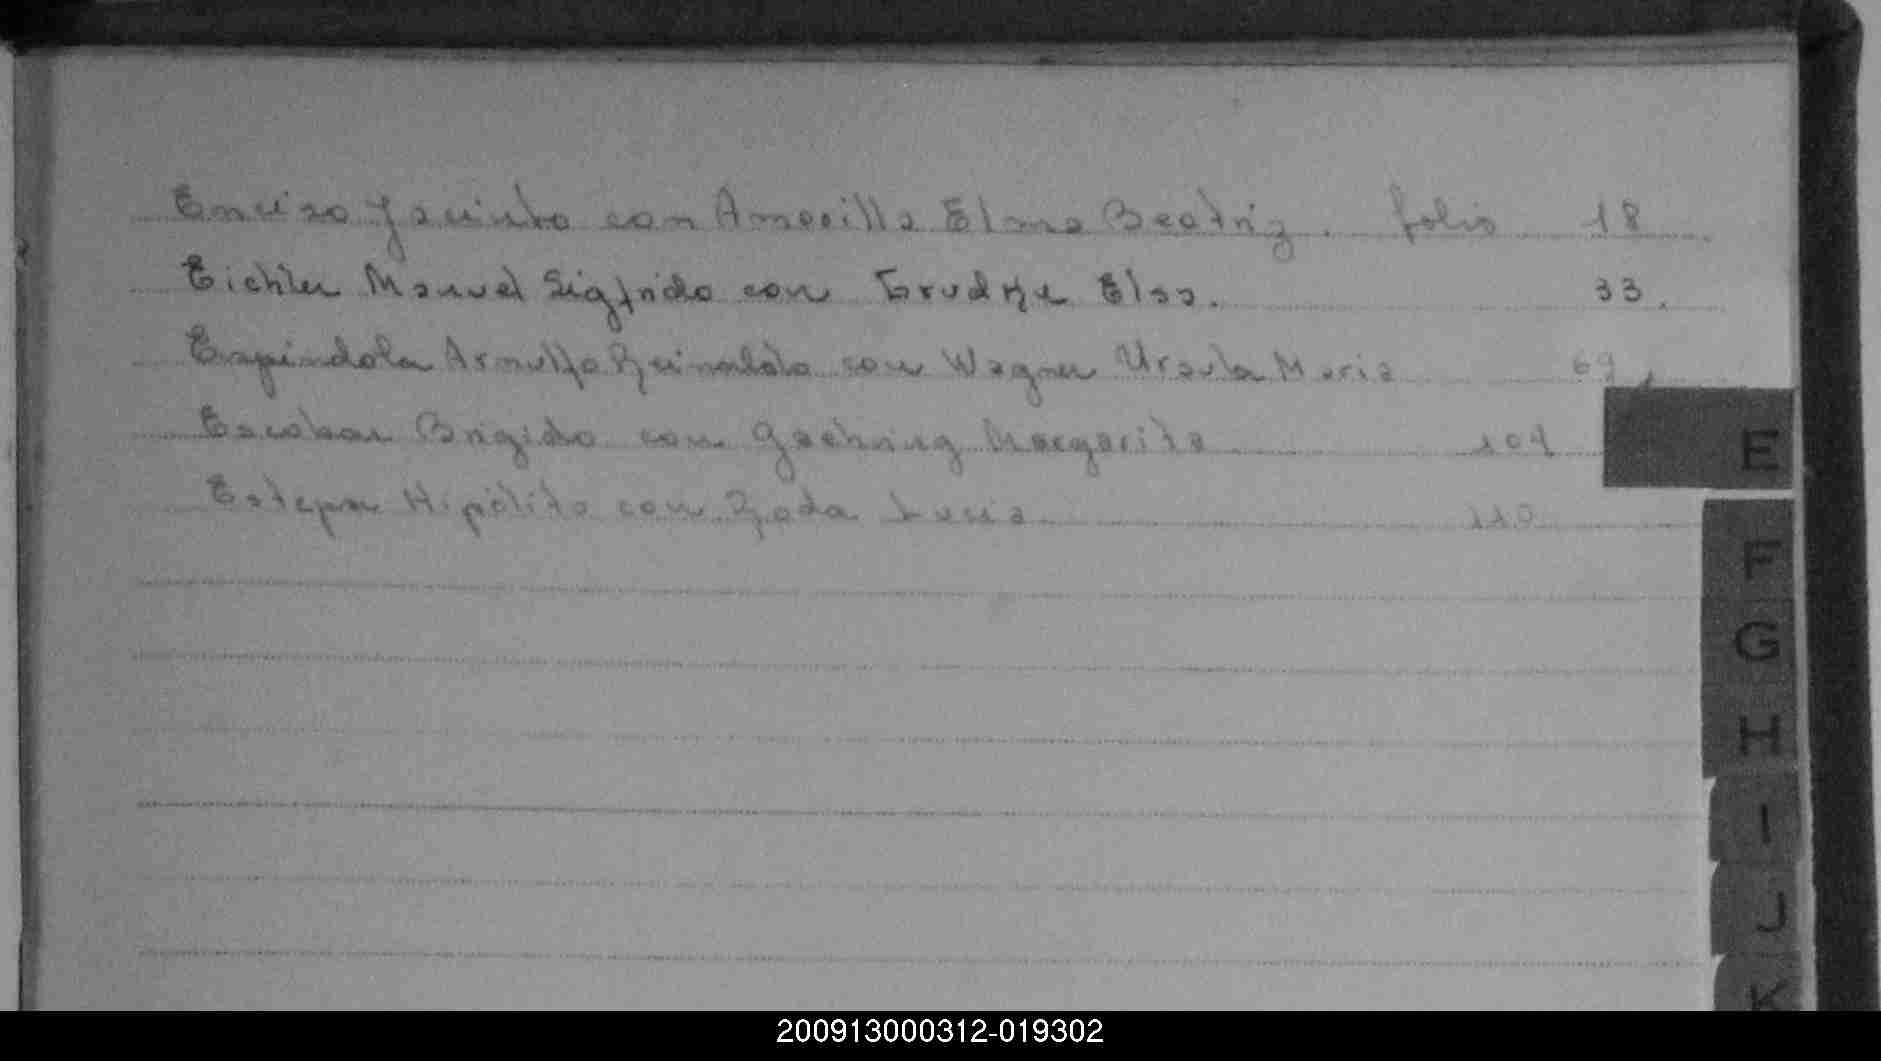 Enciso Jacinto con Amarilla Elma Beatriz. folio 18
Eichler Manuel Sigfrido con Grudke Elsa. 33.
Espindola Arnulfo Reinaldo con Wagner Ursula Maria 69,
Escobar Brigido con Goehring Margarita 104
Estepa Hipólito con Roda Lucia 110
E
F
G
H
I
J
K
200913000312-019302